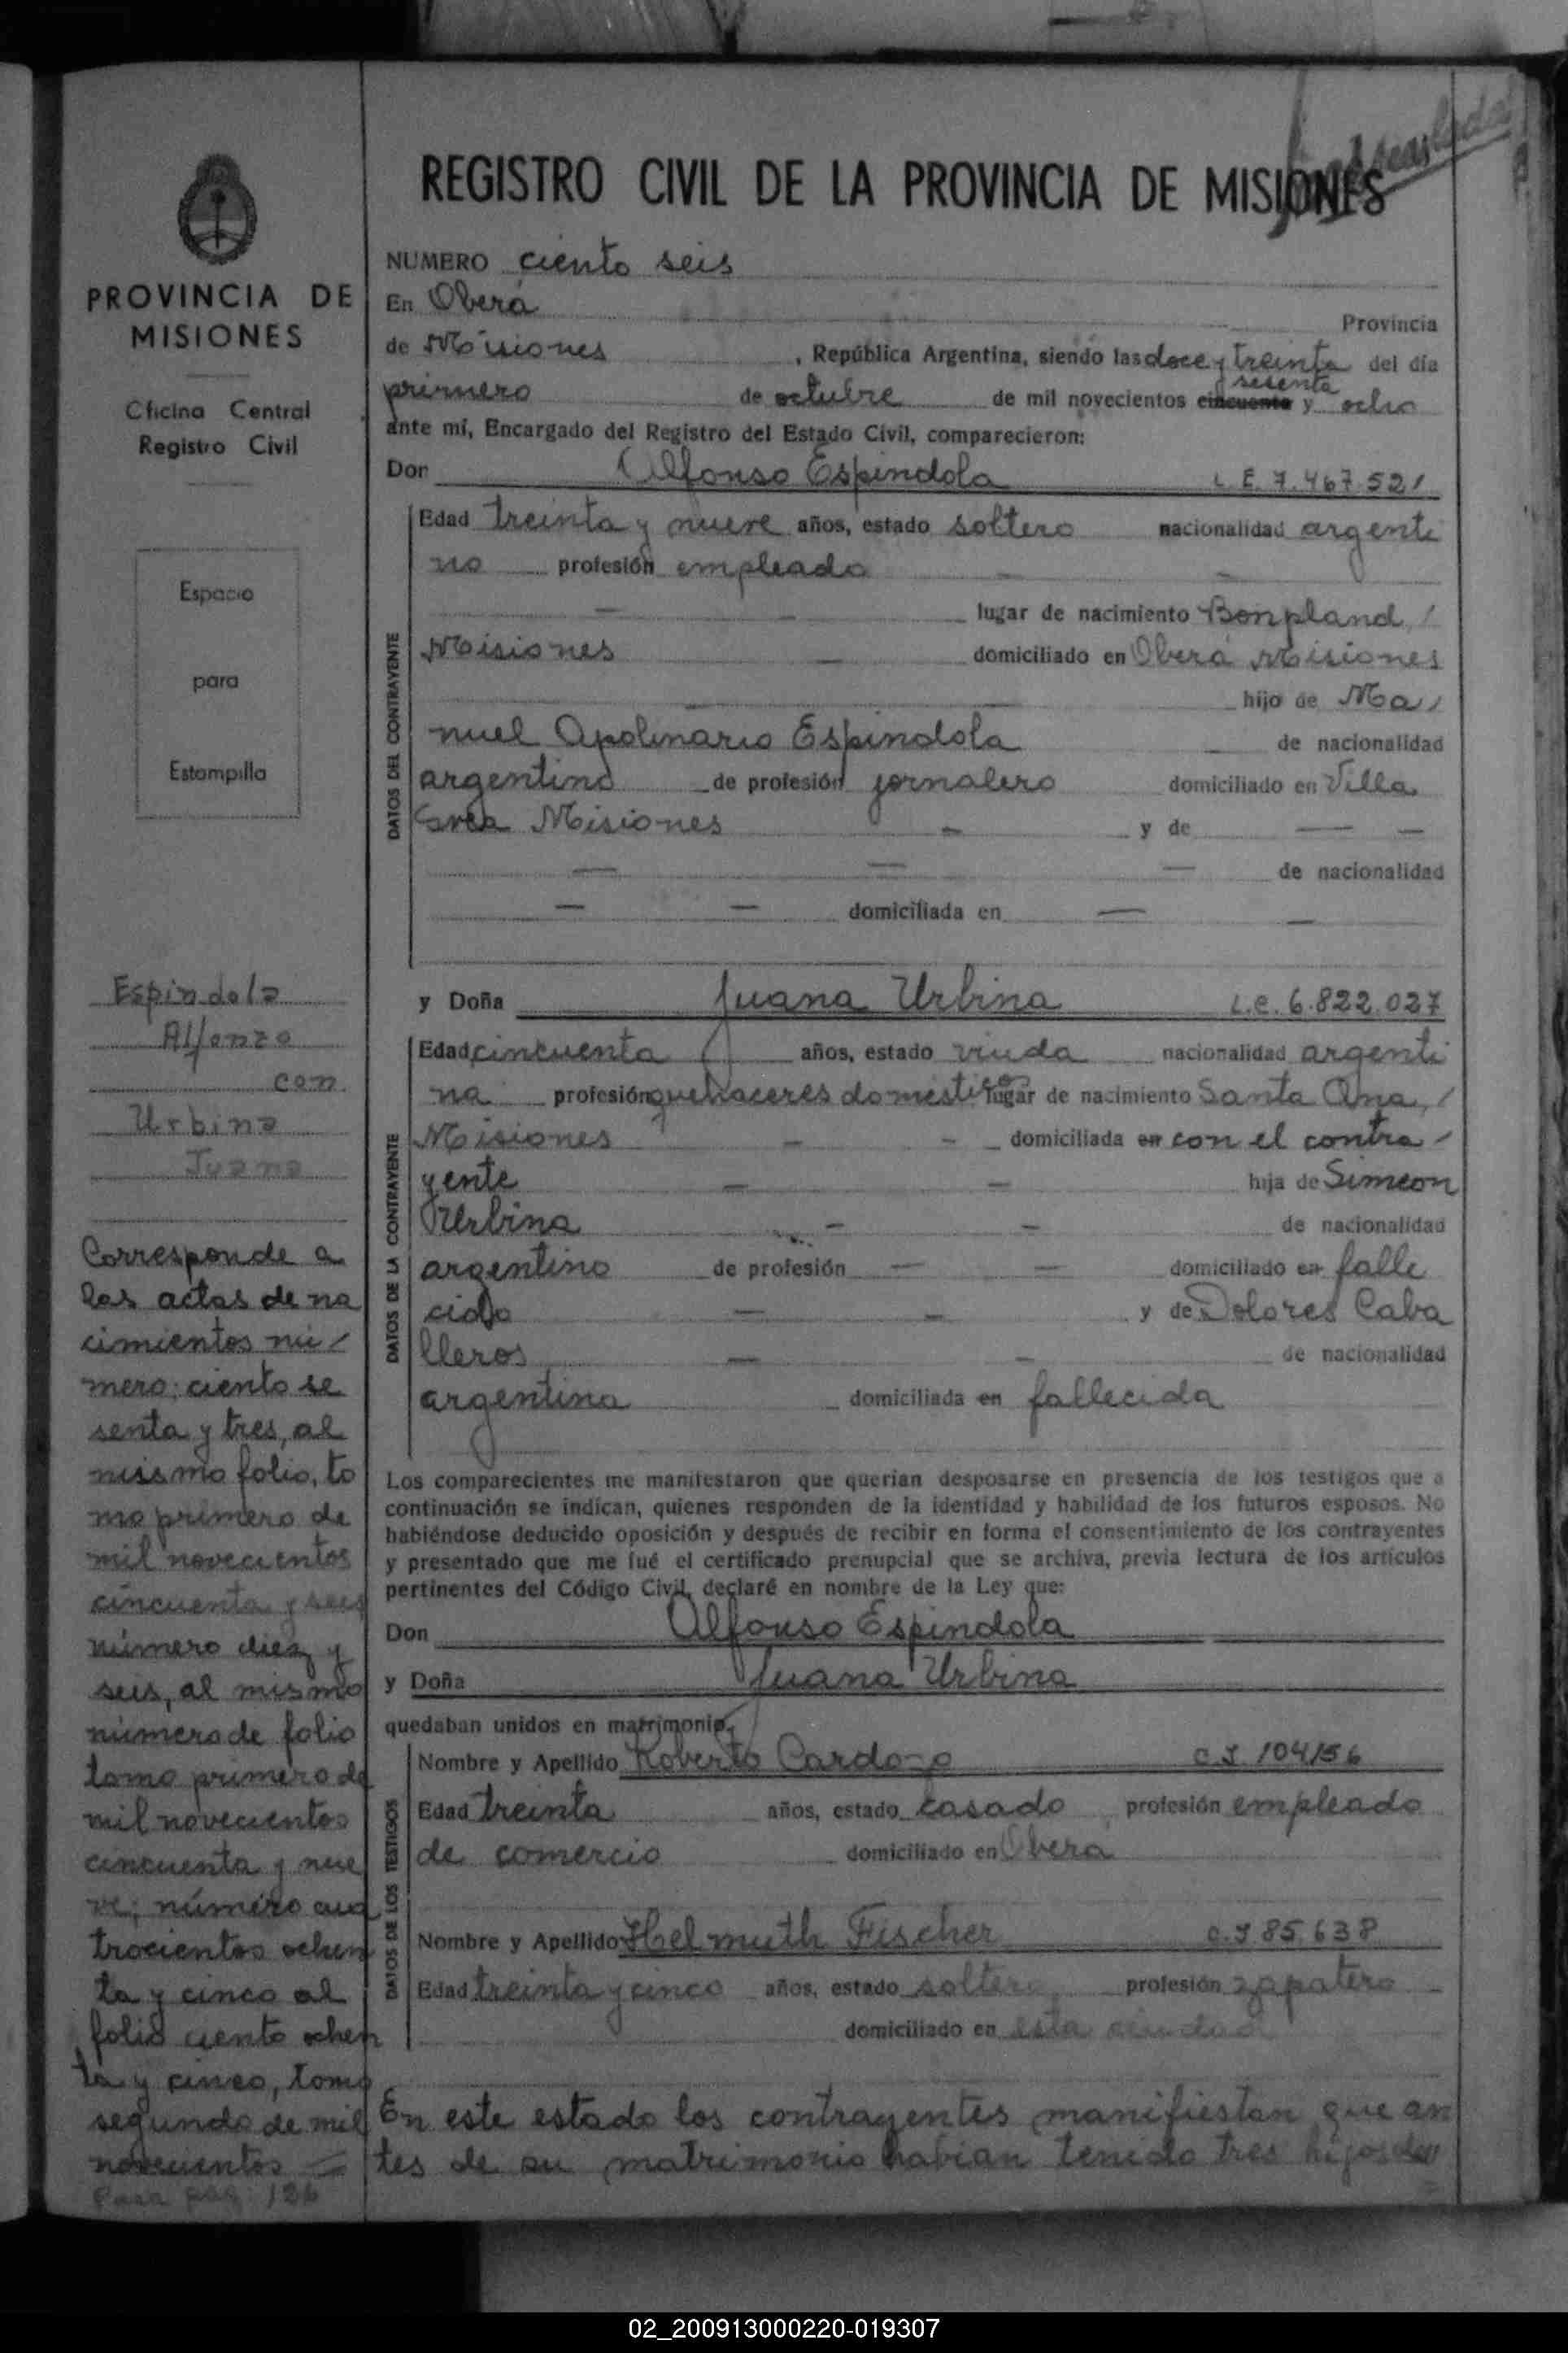 trasladada
REGISTRO CIVIL DE LA PROVINCIA DE MISIONES
PROVINCIA DE
MISIONES
Oficina Central
Registro Civil
Espacio
para
Estampilla
Espindola
Alfonzo
con
Urbina
Juana
Corresponde a
las actas de na
cimientos nú-
mero: ciento se
senta y tres, al
mismo folio, to
mo primero de
mil novecientos
cincuenta y seis
número diez y
seis, al mismo
número de folio
tomo primero de
mil novecientos
cincuenta y nue
ve; número cua
trocientos ochen
ta y cinco al
folio ciento ochen
ta y cinco, tomo
segundo de mil
novecientos
Pasa pag. 126
NUMERO ciento seis
En Oberá Provincia
de Misiones , República Argentina, siendo las doce y treinta del día
primero de octubre de mil novecientos cincuenta sesenta y ocho
ante mí, Encargado del Registro del Estado Civil, comparecieron:
Don Alfonso Espindola L.E. 7.467.521
DATOS DEL CONTRAYENTE
Edad treinta y nueve años, estado soltero nacionalidad argenti
no profesión empleado
lugar de nacimiento Bonpland,
Misiones domiciliado en Oberá Misiones
hijo de Ma
nuel Apolinario Espindola de nacionalidad
argentino de profesión jornalero domiciliado en Villa
Misiones y de
de nacionalidad
domiciliada en
y Doña Juana Urbina L.C. 6.822.027
DATOS DE LA CONTRAYENTE
Edad cincuenta años, estado viuda nacionalidad argenti
na profesión quehaceres domestico lugar de nacimiento Santa Ana,
Misiones domiciliada en con el contra-
yente hija de Simeon
Urbina de nacionalidad
argentino de profesión domiciliado en falle
cido y de Dolores Caba
lleros de nacionalidad
argentina domiciliada en fallecida
Los comparecientes me manifestaron que querían desposarse en presencia de los testigos que a
continuación se indican, quienes responden de la identidad y habilidad de los futuros esposos. No
habiéndose deducido oposición y después de recibir en forma el consentimiento de los contrayentes
y presentado que me fué el certificado prenupcial que se archiva, previa lectura de los artículos
pertinentes del Código Civil, declaré en nombre de la Ley que:
Don Alfonso Espindola
y Doña Juana Urbina
quedaban unidos en matrimonio,
DATOS DE LOS TESTIGOS
Nombre y Apellido Roberto Cardozo C.I. 104156
Edad treinta años, estado casado profesión empleado
de comercio domiciliado en Oberá
Nombre y Apellido Helmuth Fischer C.I 85.638
Edad treinta y cinco años, estado soltero profesión zapatero
domiciliado en esta ciudad
En este estado los contrayentes manifiestan que an
tes de su matrimonio habian tenido tres hijos
02_200913000220-019307